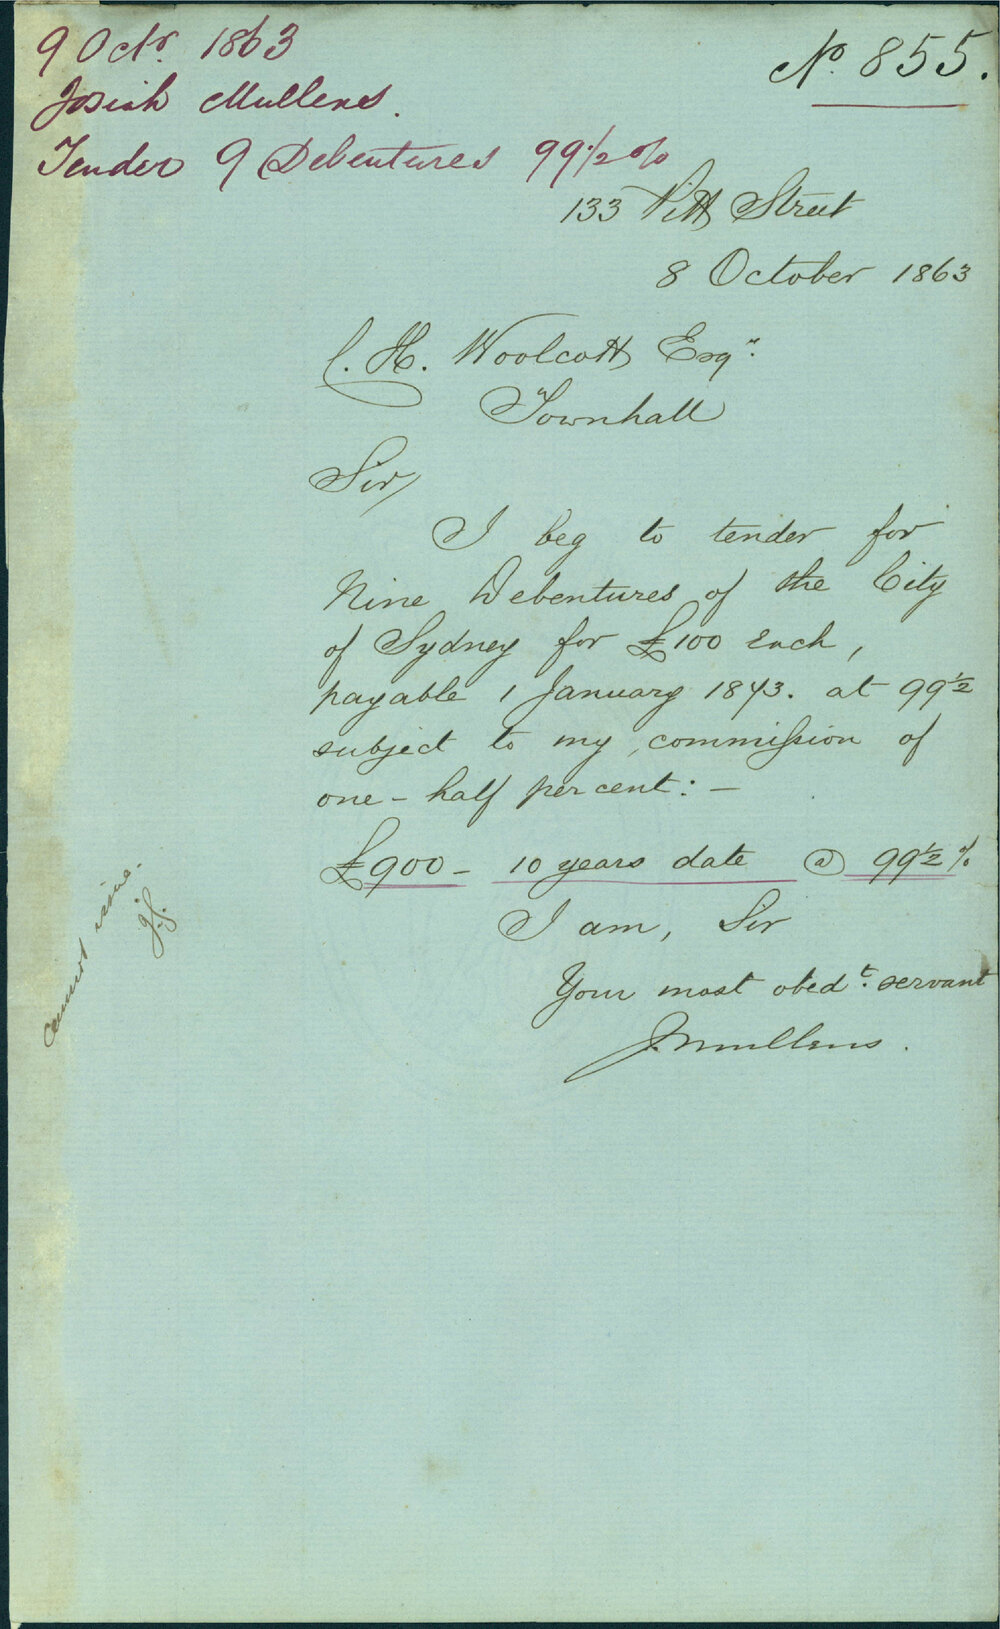 9 Octr. 1863
Josiah Mullens.
Tender 9 Debentures 99 1/2 %
No. 855.
133 Pitt Street
8 October 1863
C. H. Woolcott Esqr.
Townhall
Sir/
I beg to tender for
Nine Debentures of the City
of Sydney for £100 each,
payable 1 January 1873. at 99 1/2
subject to my commission of
one-half per cent: —
£900 - 10 years date @ 99 1/2 %
I am, Sir
Your most obedt. servant
J. Mullens.
cannot